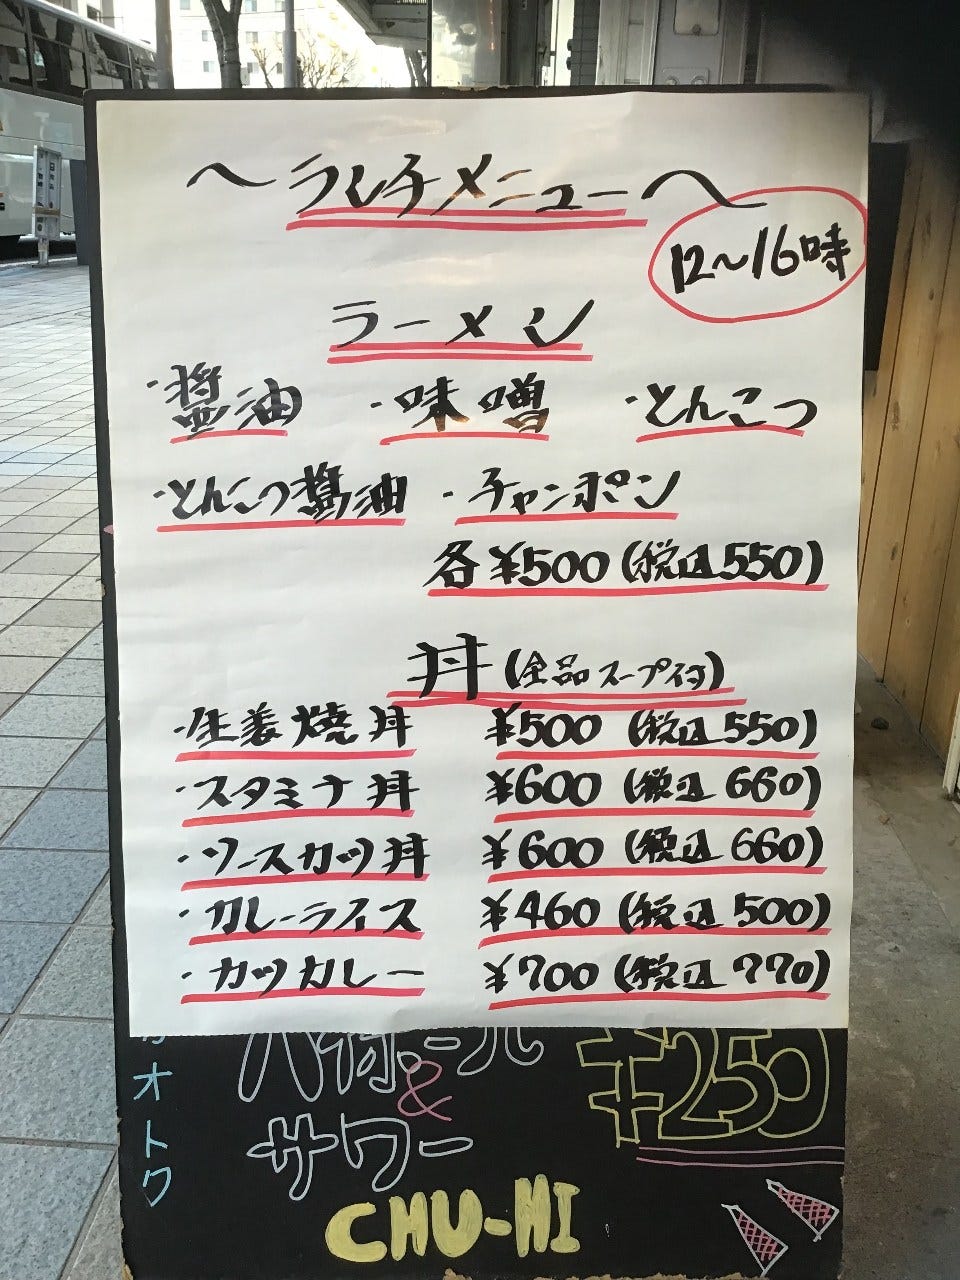 〜ランチメニュー〜
12〜16時
ラーメン
・醤油 ・味噌 ・とんこつ
・とんこつ醤油 ・チャンポン
各¥500(税込550)
丼(全品スープ付)
・生姜焼丼 ¥500(税込550)
・スタミナ丼 ¥600(税込660)
・ソースカツ丼 ¥600(税込660)
・カレーライス ¥460(税込500)
・カツカレー ¥700(税込770)
オトク
&
サワー
¥250
CHU-HI